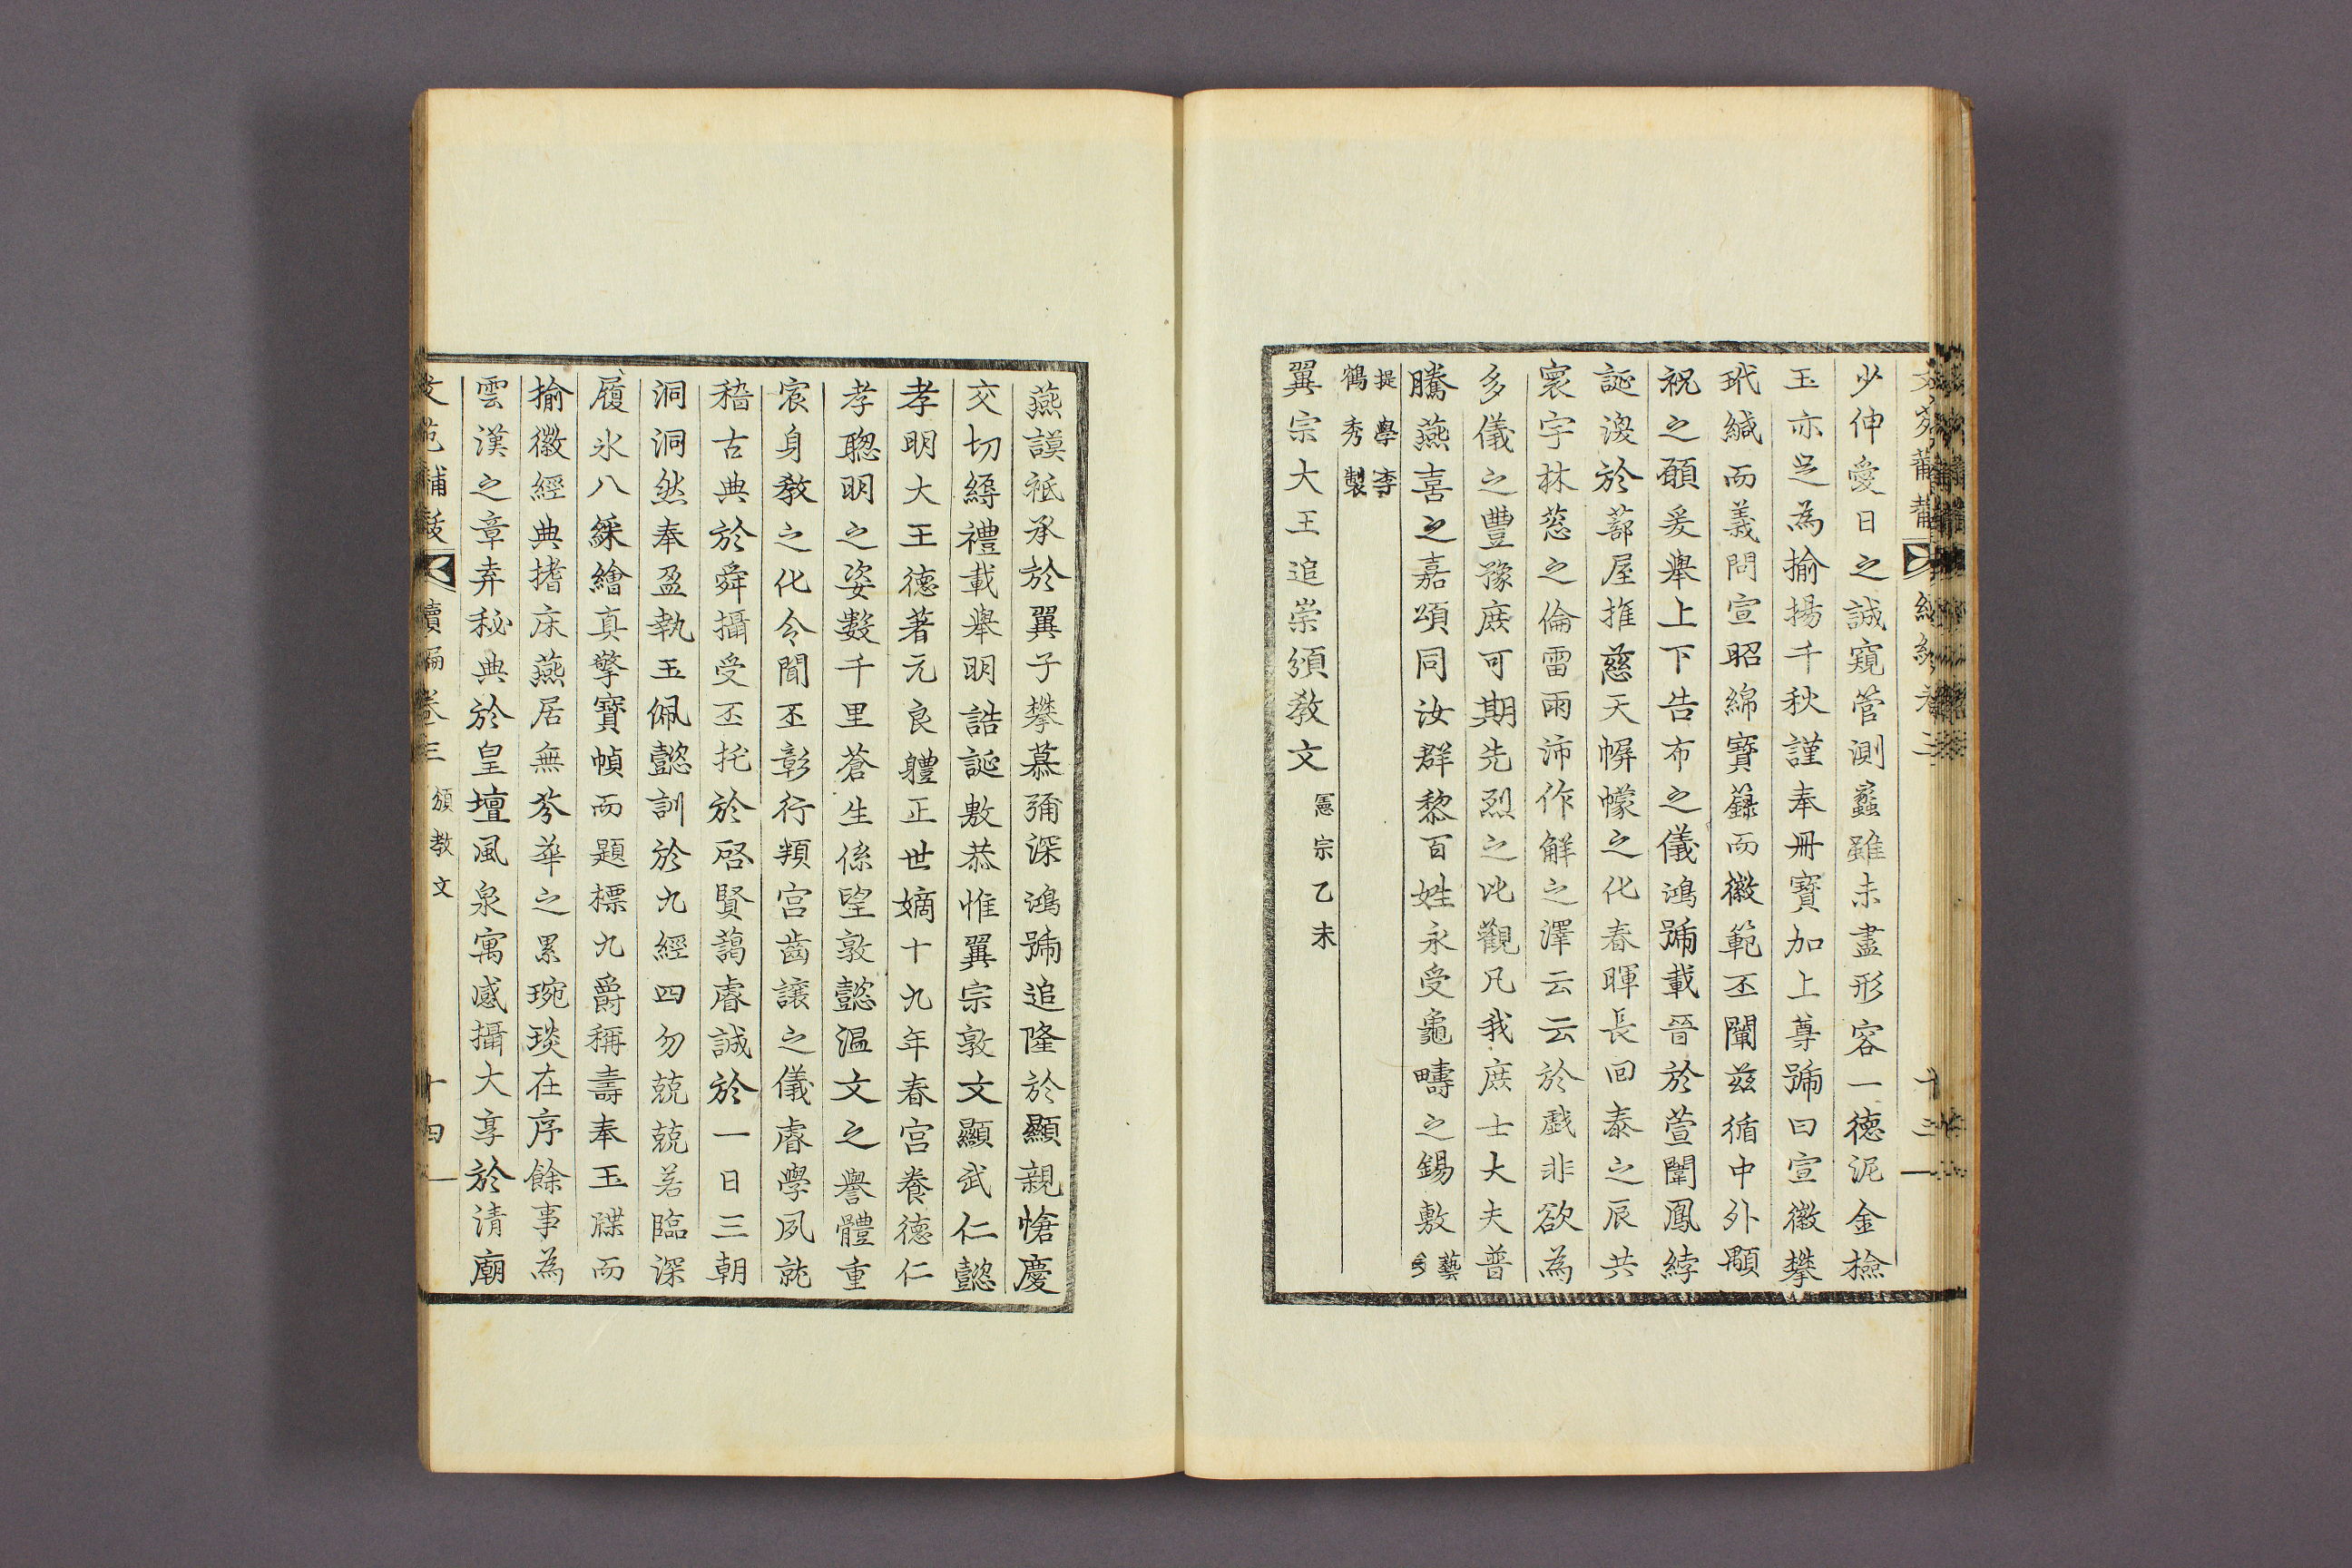 少伸愛日之誠窺管測蠡雖未盡形容一德泥金檢
玉亦足為揄揚千秋謹奉冊寶加上尊號曰宣徽攀
玳緘而義問宣昭綿寶籙而徽範丕闡玆循中外顒
祝之願爰舉上下告布之儀鴻號載晉於萱闈鳳綍
誕渙於蔀屋推慈天幈幪之化春暉長回泰之辰共
寰宇袜慈之倫雷雨沛作解之澤云云於戲非欲為
多儀之豐豫庶可期先烈之比觀凡我庶士大夫普
騰燕喜之嘉頌同汝群黎百姓永受龜疇之錫敷藝
多
提學李
鶴秀製
翼宗大王追崇頒教文憲宗乙未
燕謨祗承於翼子攀慕彌深鴻號追隆於顯親愴慶
交切縟禮載舉明誥誕敷恭惟翼宗敦文顯武仁懿
孝明大王德著元良軆正世嫡十九年春宮養德仁
孝聰明之姿數千里蒼生係望敦懿溫文之譽體重
宸身教之化令聞丕彰行頖宮齒讓之儀睿學夙就
稽古典於舜攝受丕托於啓賢藹睿誠於一日三朝
洞洞然奉盈執玉佩懿訓於九經四勿兢兢若臨深
履氷八綵繪真擎寶幀而題標九爵稱壽奉玉牒而
揄徽經典搘床燕居無芬華之累琬琰在序餘事為
雲漢之章弆秘典於皇壇風泉寓感攝大享於清廟
文苑黼黻 續編卷三 頒教文 十四